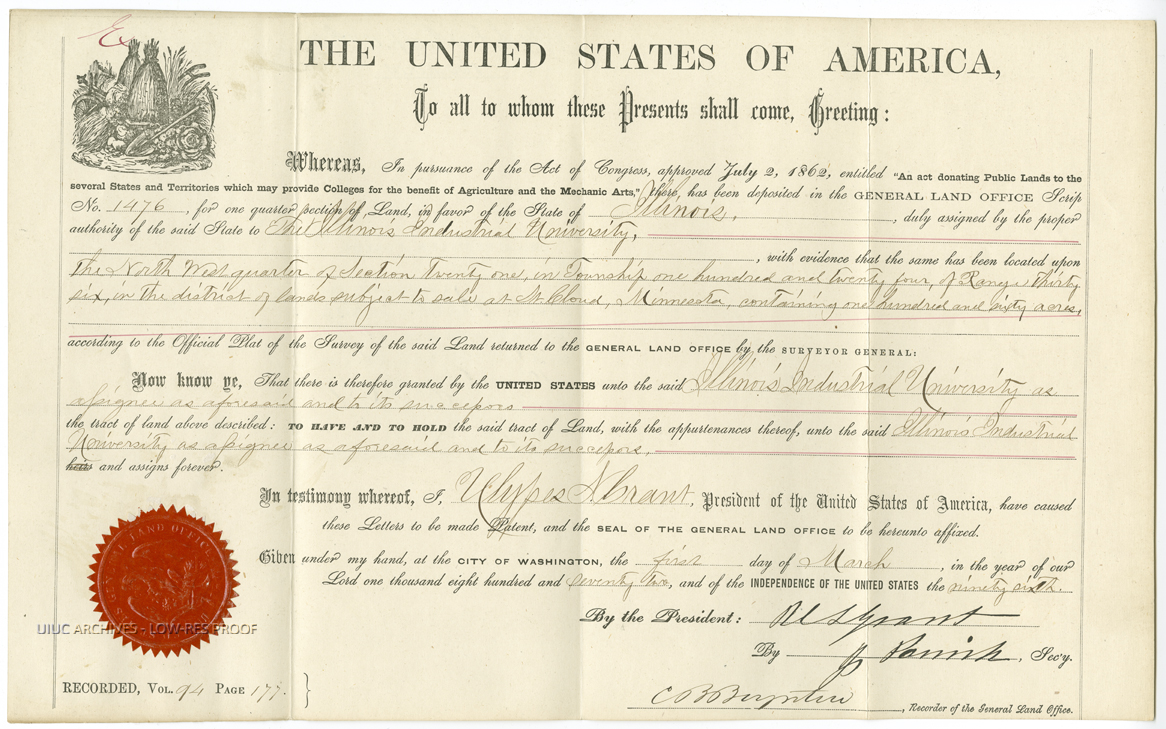 THE UNITED STATES OF AMERICA,
To all to whom these Presents shall come, Greeting:
Whereas, In pursuance of the Act of Congress, approved July 2, 1862, entitled "An act donating Public Lands to the
several States and Territories which may provide Colleges for the benefit of Agriculture and the Mechanic Arts," there has been deposited in the GENERAL LAND OFFICE Scrip
No. 1476, for one quarter section of Land, in favor of the State of Illinois, duly assigned by the proper
authority of the said State to The Illinois Industrial University,
, with evidence that the same has been located upon
the North West quarter of Section Twenty one, in Township one hundred and twenty four, of Range Thirty
six, in the district of lands subject to sale at St Cloud, Minnesota, containing one hundred and sixty acres,
according to the Official Plat of the Survey of the said Land returned to the GENERAL LAND OFFICE by the SURVEYOR GENERAL:
Now know ye, That there is therefore granted by the UNITED STATES unto the said Illinois Industrial University as
assignee as aforesaid and to its successors
the tract of land above described: TO HAVE AND TO HOLD the said tract of Land, with the appurtenances thereof, unto the said Illinois Industrial
University as assignee as aforesaid and to its successors,
heirs and assigns forever.
In testimony whereof, I, Ulysses S Grant, President of the United States of America, have caused
these Letters to be made Patent, and the SEAL OF THE GENERAL LAND OFFICE to be hereunto affixed.
Given under my hand, at the CITY OF WASHINGTON, the first day of March, in the year of our
Lord one thousand eight hundred and seventy two, and of the INDEPENDENCE OF THE UNITED STATES the ninety sixth.
By the President: U S Grant
By Parrish, Sec'y.
UIUC ARCHIVES - LOW-RES PROOF
RECORDED, VOL. 94 PAGE 177.
C B Boynton, Recorder of the General Land Office.